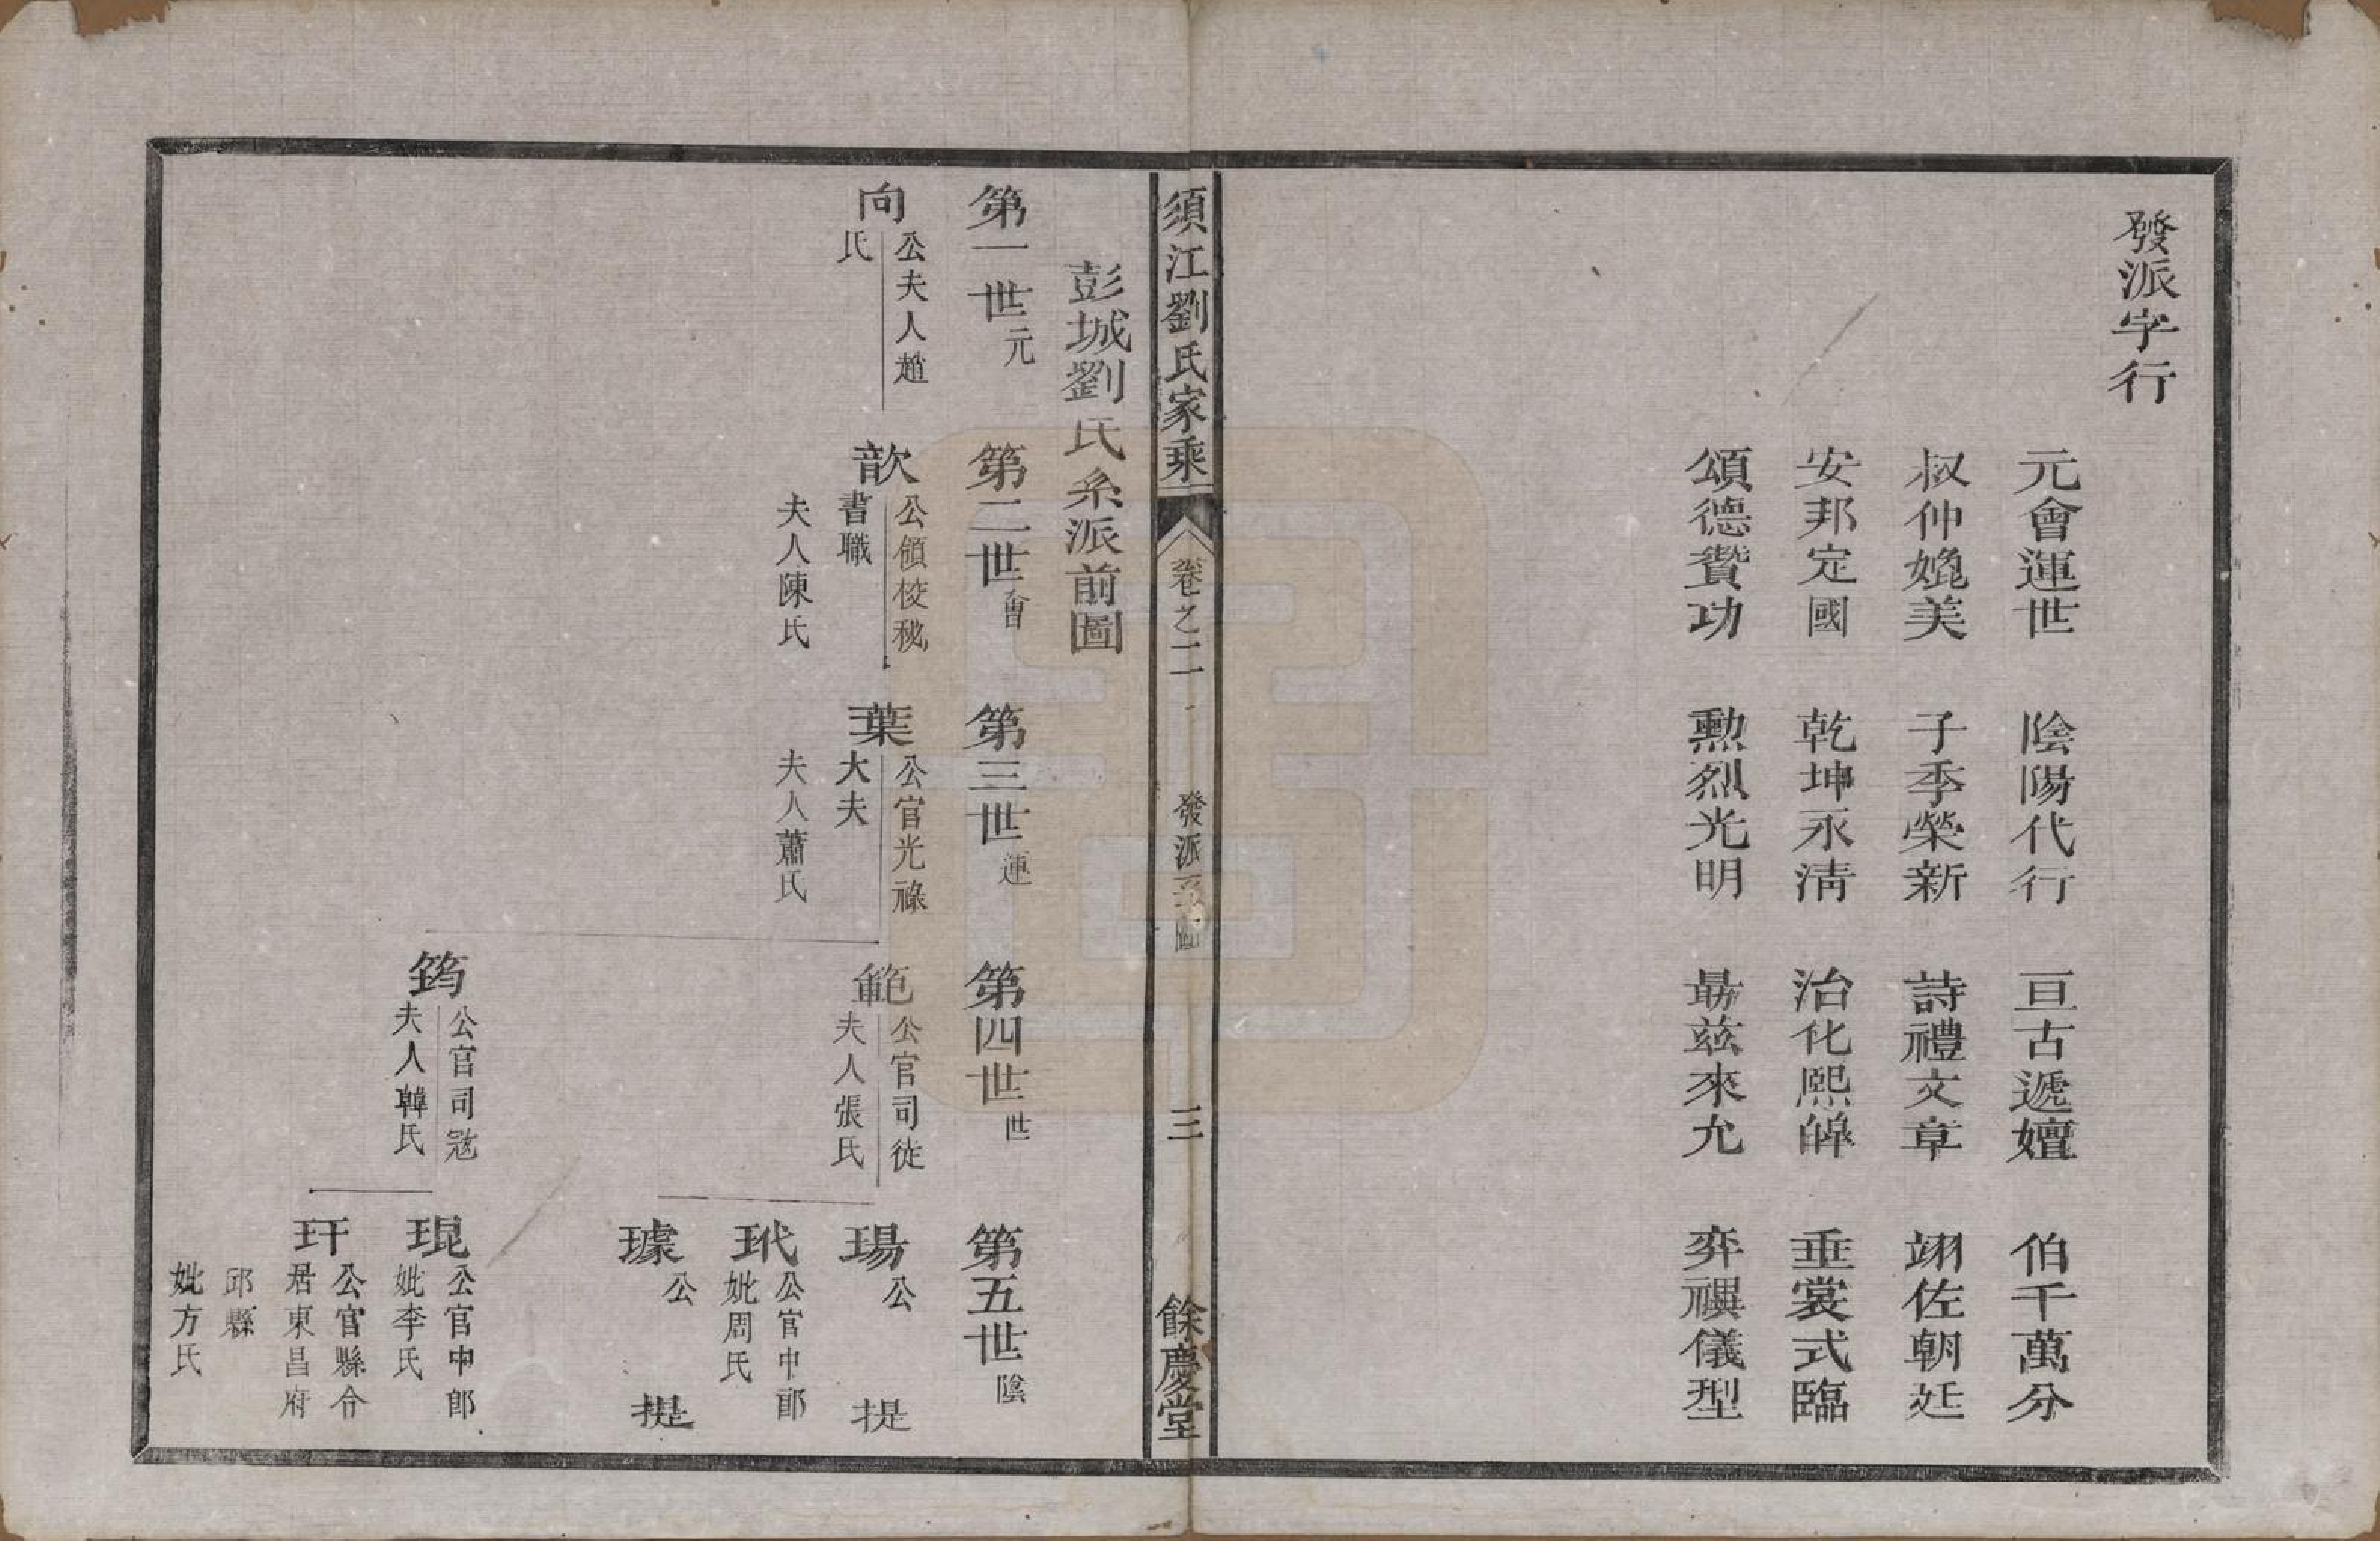 發派字行
元會運世 陰陽代行 亘古遞嬗 伯千萬分
叔仲媲美 子季榮新 詩禮文章 翊佐朝廷
安邦定國 乾坤永清 治化熙皥 垂裳式臨
頌德贊功 勲烈光明 勗兹來允 弈禩儀型
須江劉氏家乘 卷之二 發派系圖 三 餘慶堂
彭城劉氏系派前圖
第一世元 第二世會 第三世運 第四世世 第五世陰
向 公夫人趙
氏
歆 公領校秘
書職
夫人陳氏
葉 公官光祿
大夫
夫人蕭氏
範 公官司徒
夫人張氏
筠 公官司冠
夫人韓氏
瑒 公 提
玳 公官中郎
妣周氏
璩 公 提
琨 公官中郎
妣李氏
玕 公官縣令
居東昌府
邱縣
妣方氏